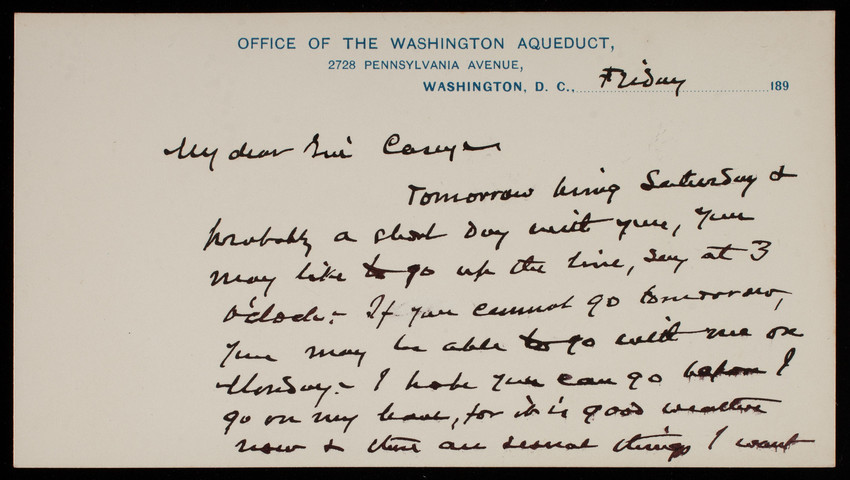 OFFICE OF THE WASHINGTON AQUEDUCT,
2728 PENNSYLVANIA AVENUE,
WASHINGTON, D. C., Friday 189
My dear Casey
Tomorrow being Saturday &
probably a short day with you, you
may like to go up the line, say at 3
o'clock. If you cannot go tomorrow,
you may be able to go with me on
Monday. I hope you can go before I
go on my leave, for it is good weather
now & there are several things I want